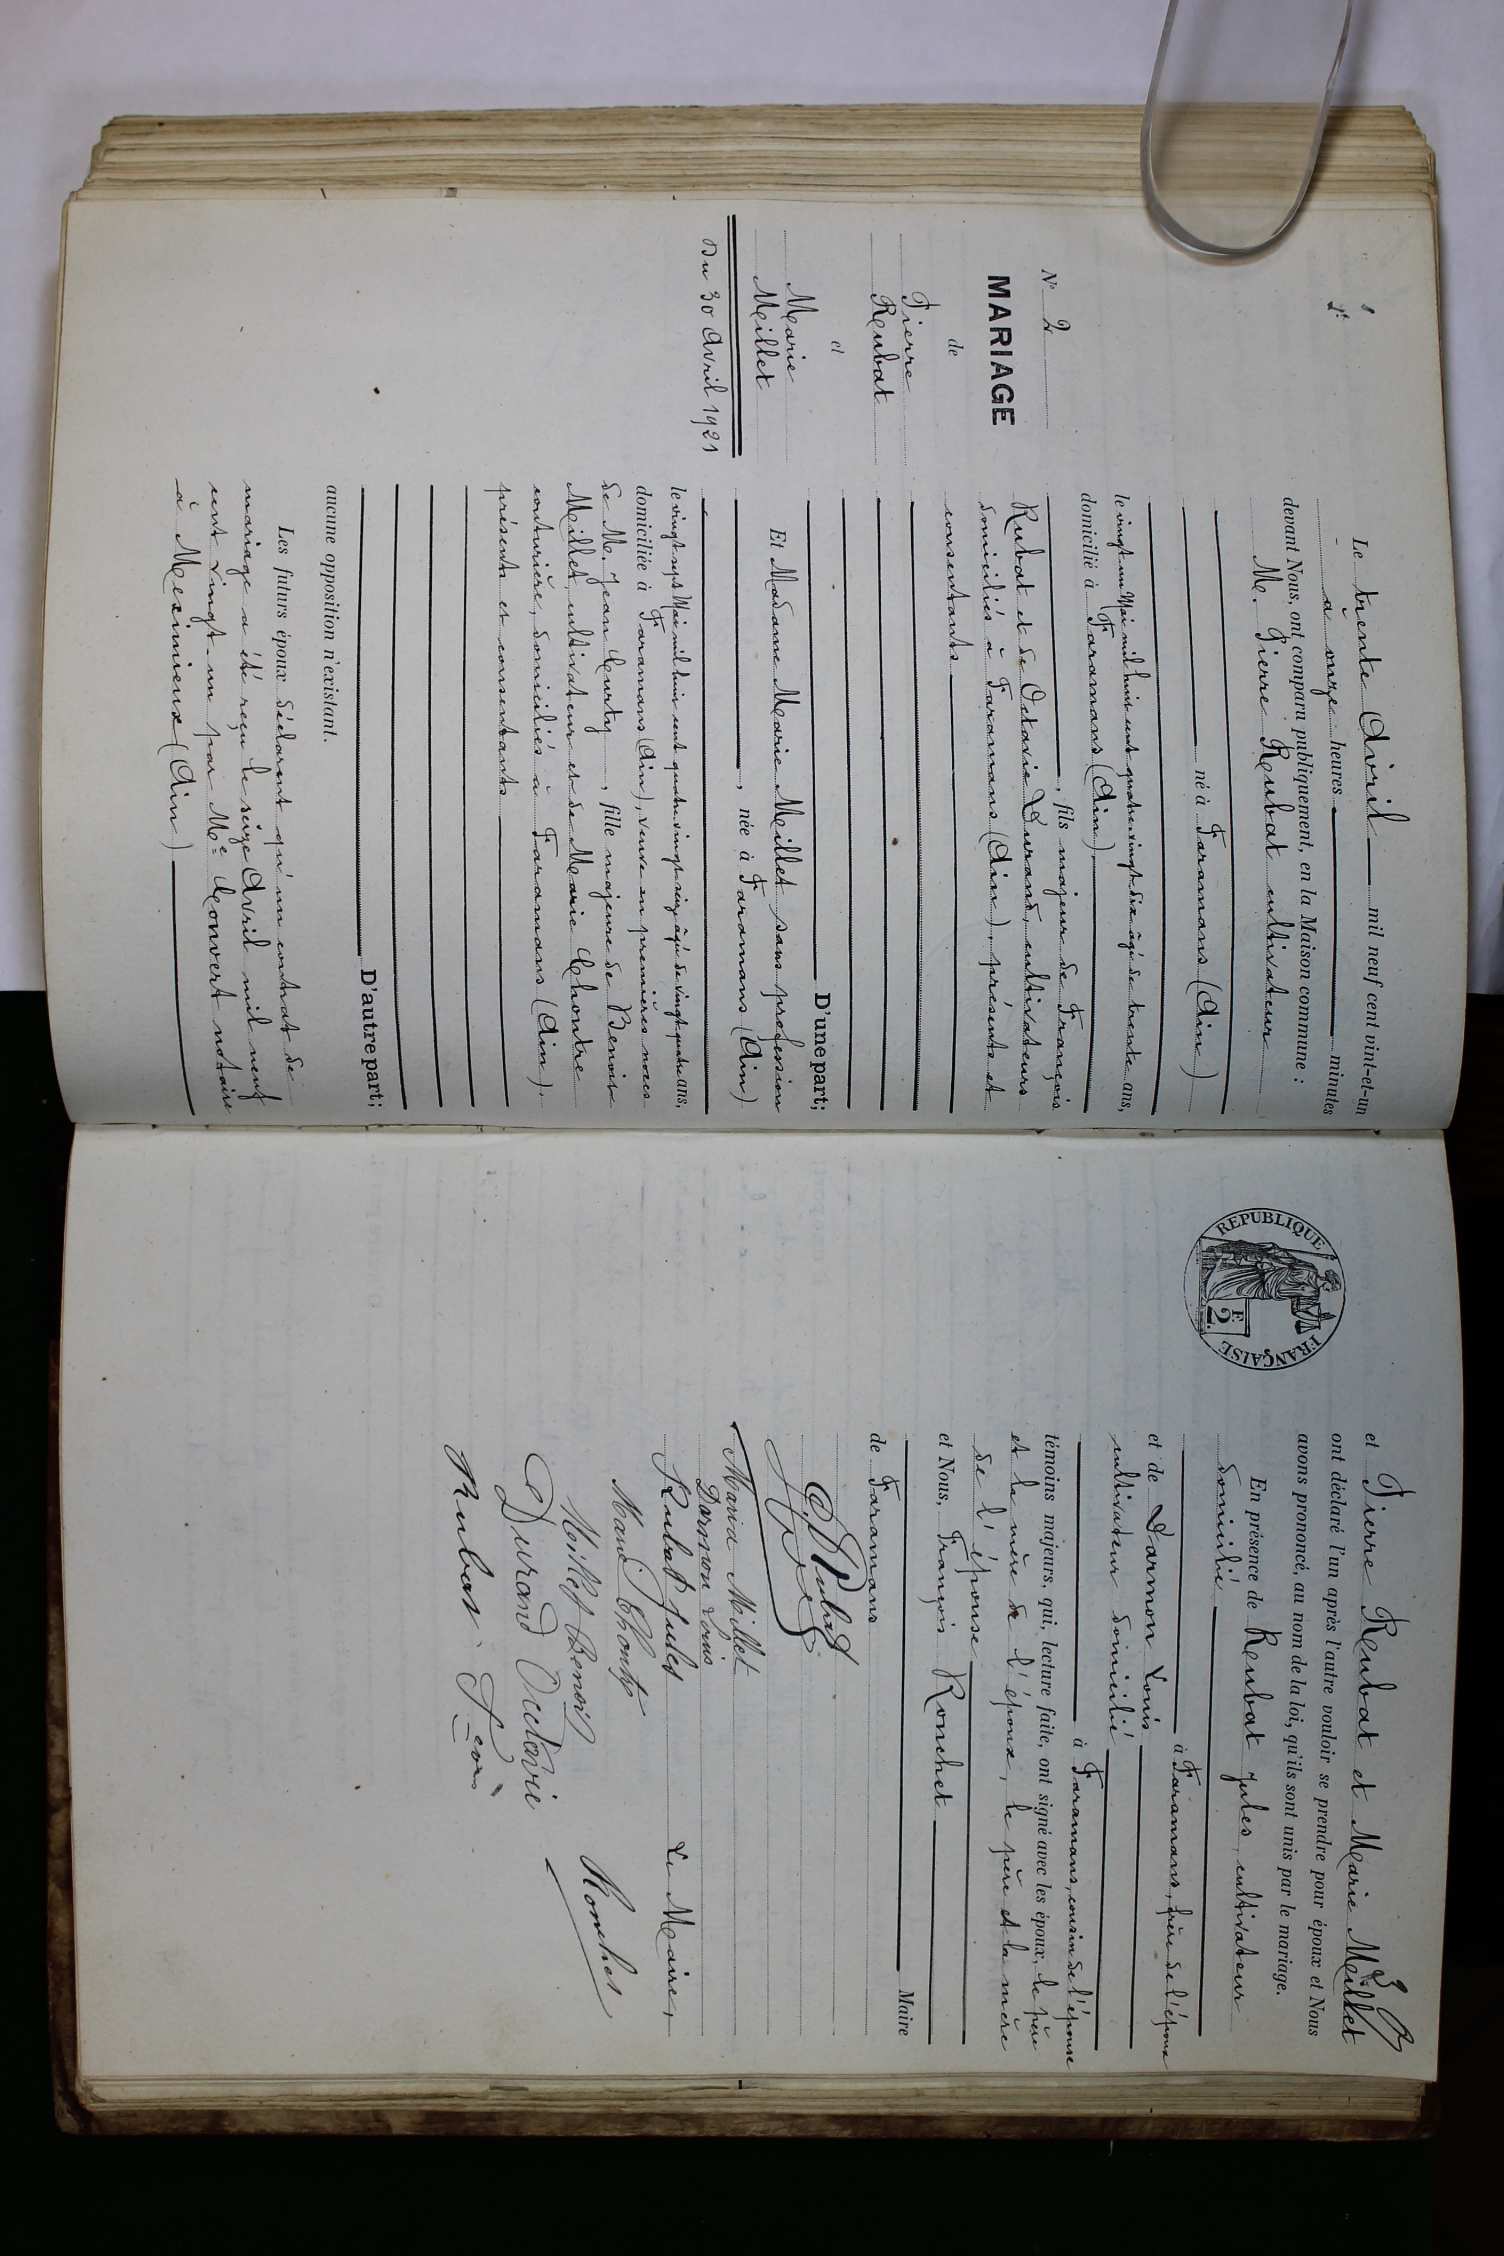 N° 2
MARIAGE
de
Pierre
Reubat
et
Marie
Meillet
Du 30 Avril 1921
Le trente Avril mil neuf cent vint-et-un
à onze heures minutes
devant Nous, ont comparu publiquement, en la Maison commune :
M. Pierre Reubat cultivateur
né à Faramans (Ain)
le vingt un Mai mil huit cent quatre vingt dix âgé de trente ans,
domicilié à Faramans (Ain)
, fils majeur de François
Rubat et de Octavie Durand, cultivateurs
domiciliés à Faramans (Ain), présents et
consentants
D'une part;
Et Madame Marie Meillet sans profession
, née à Faramans (Ain)
le vingt sept Mai mil huit cent quatre vingt seize âgé de vingt quatre ans,
domiciliée à Faramans (Ain), veuve en premières noces
de M. Jean Curty, fille majeure de Benoit
Meillet, cultivateur et de Marie Chontre
couturière, domiciliés à Faramans (Ain),
présents et consentants
D'autre part;
aucune opposition n'existant.
Les futurs époux déclarent qu'un contrat de
mariage a été reçu le seize Avril mil neuf
cent vingt-un par Me Convert notaire
à Meximieux (Ain)
3
et Pierre Reubat et Marie Meillet
ont déclaré l'un après l'autre vouloir se prendre pour époux et Nous
avons prononcé, au nom de la loi, qu'ils sont unis par le mariage.
En présence de Reubat Jules, cultivateur
domicilié
à Faramans, frère de l'époux
et de Darmon Louis
cultivateur domicilié
à Faramans, cousin de l'épouse
témoins majeurs, qui, lecture faite, ont signé avec les époux, le père
et la mère de l'époux, le père et la mère
de l'épouse
et Nous, François Ronchet
Maire
de Faramans
REPUBLIQUE FRANÇAISE
2 F.
P Rubat
Maria Millet
Darmon Louis
Rubat Jules
Le Maire,
Millet Benoit
Ronchet
Durand Octavie
Rubat